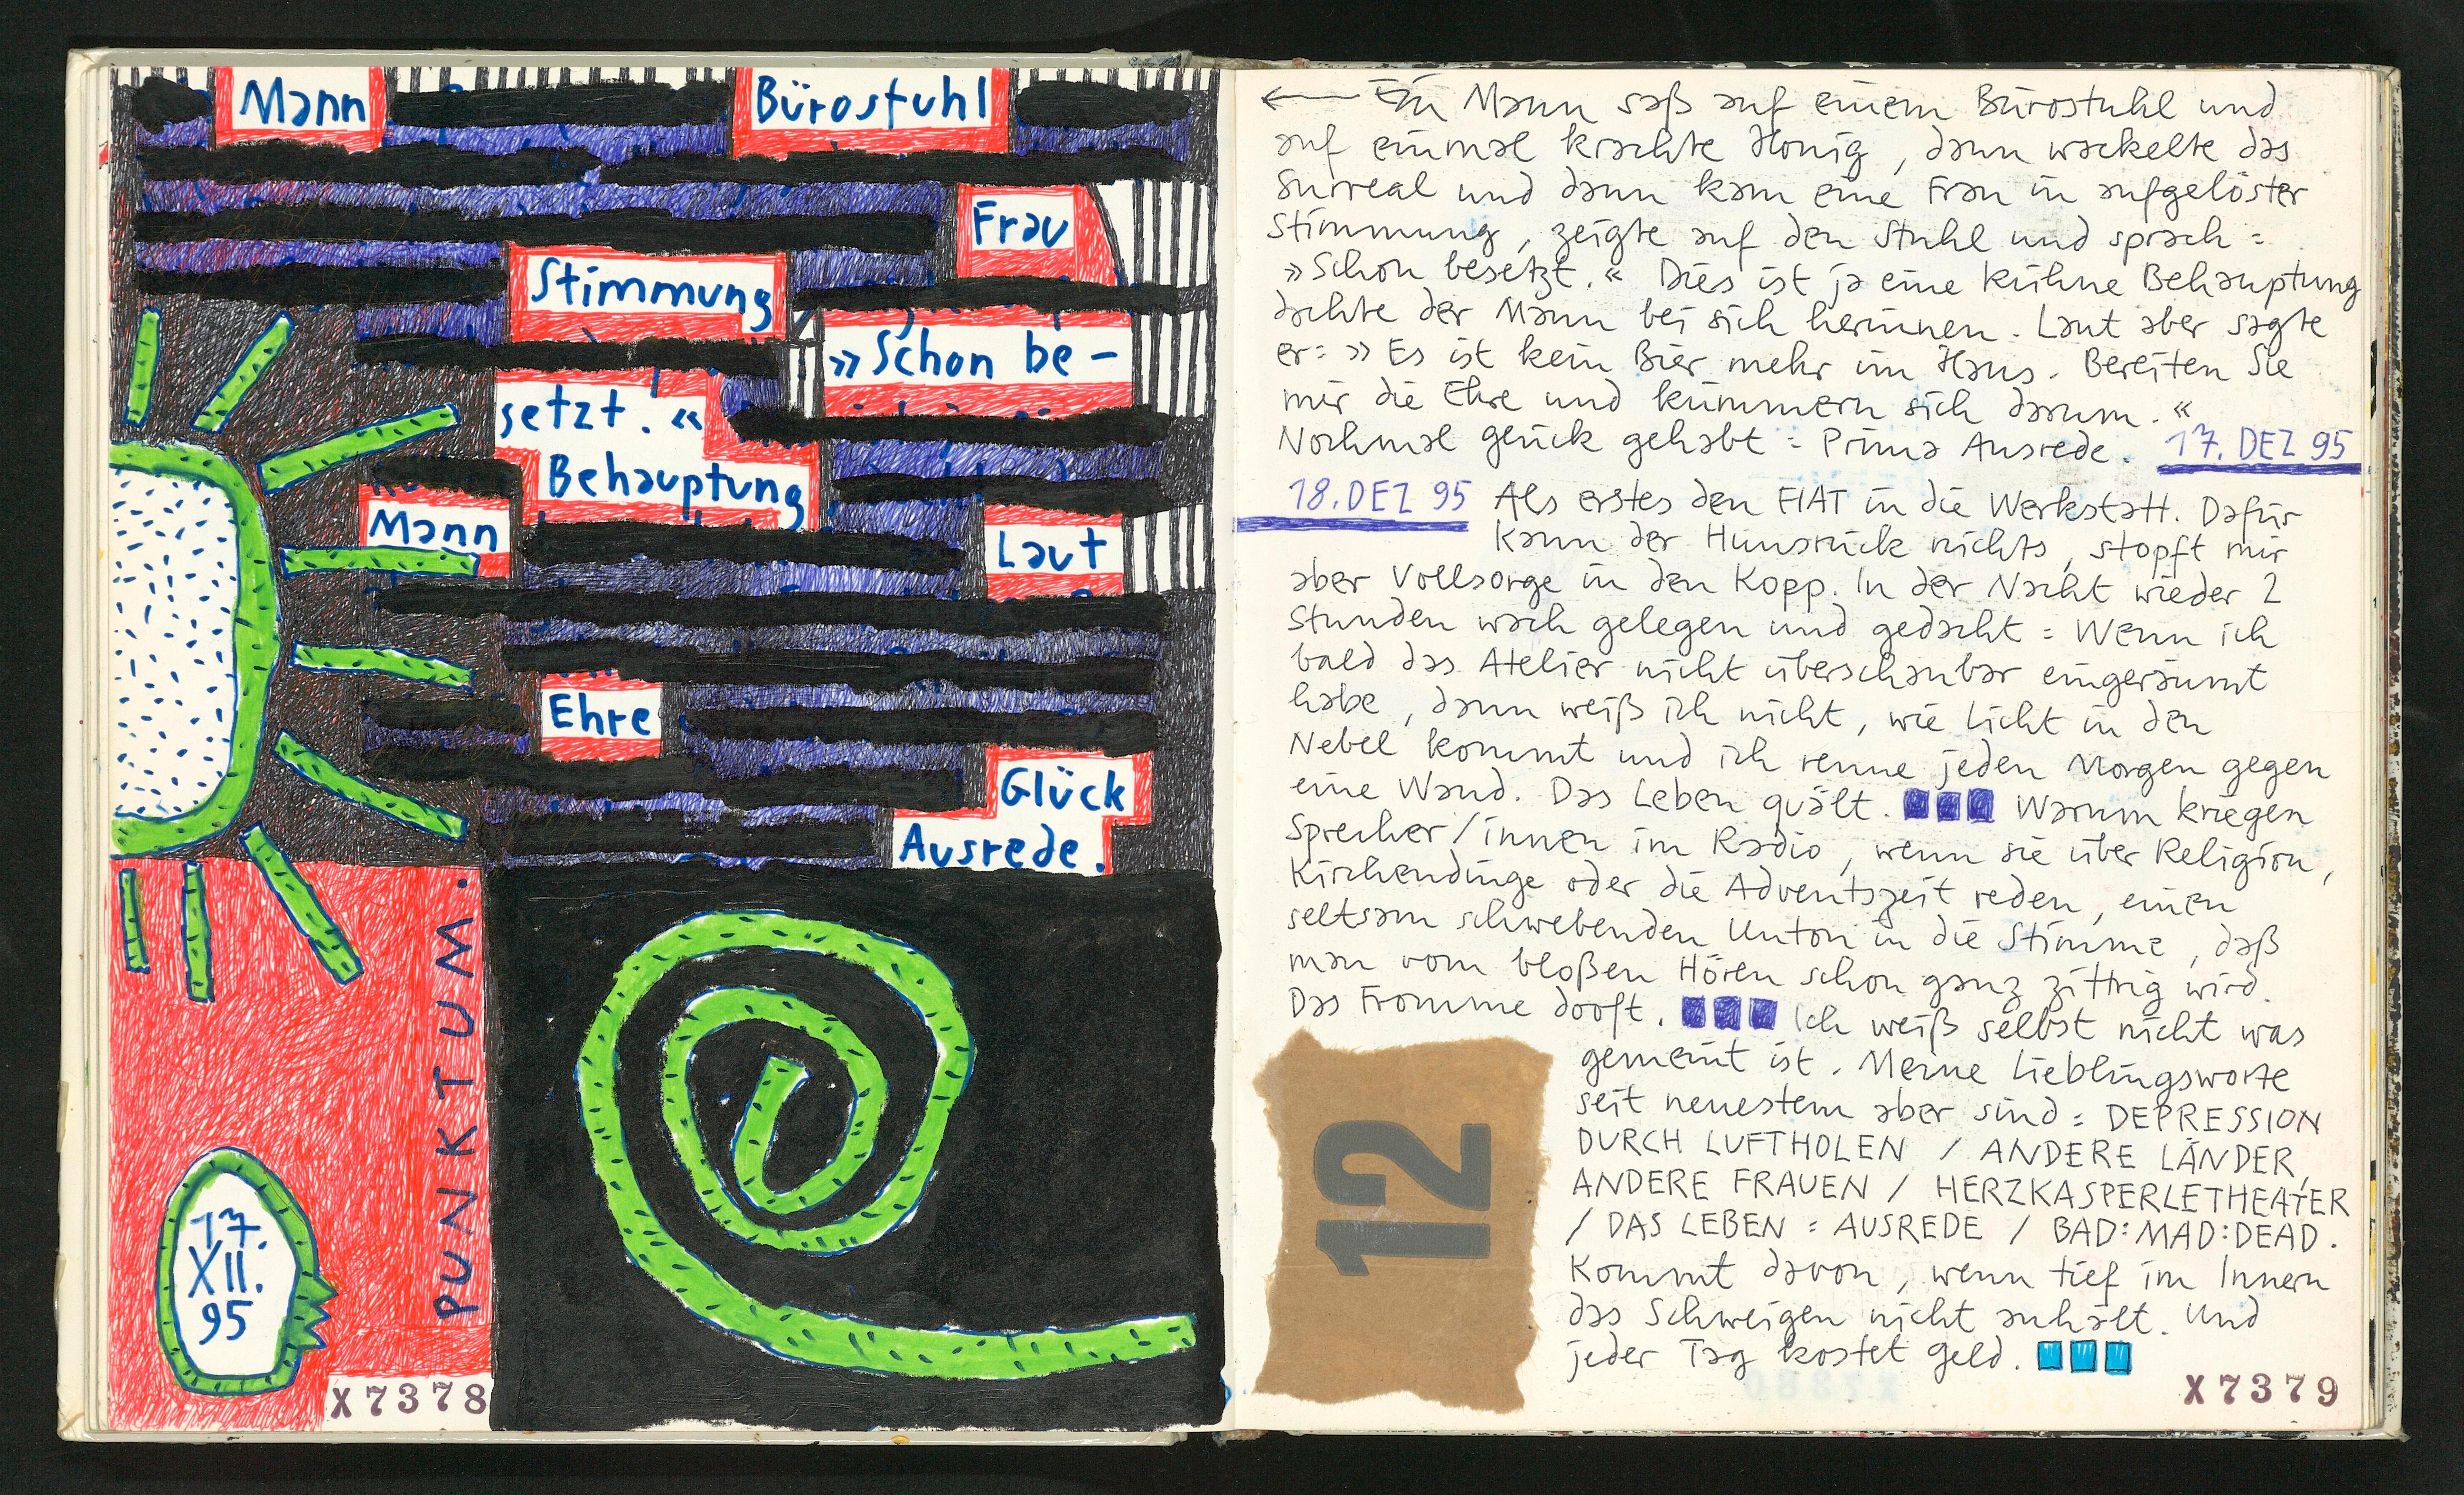 Mann
Bürostuhl
Frau
Stimmung
»Schon be-
setzt.«
Behauptung
Mann
Laut
Ehre
Glück
Ausrede.
PUNKTUM.
17.
XII.
95
X7378
← Ein Mann saß auf einem Bürostuhl und
auf einmal krachte Honig, dann wackelte das
Surreal und dann kam eine Frau in aufgelöster
Stimmung, zeigte auf den Stuhl und sprach:
»Schon besetzt.« Dies ist ja eine kühne Behauptung
dachte der Mann bei sich herinnen. Laut aber sagte
er: »Es ist kein Bier mehr im Haus. Bereiten Sie
mir die Ehre und kümmern sich darum.«
Nochmal glück gehabt: Prima Ausrede. 17. DEZ 95
18. DEZ 95 Als erstes den FIAT in die Werkstatt. Dafür
kann der Hunsrück nichts, stopft mir
aber Vollsorge in den Kopp. In der Nacht wieder 2
Stunden wach gelegen und gedacht: Wenn ich
bald das Atelier nicht überschaubar eingeräumt
habe, dann weiß ich nicht, wie Licht in den
Nebel kommt und ich renne jeden Morgen gegen
eine Wand. Das Leben quält. Warum kriegen
Sprecher/innen im Radio, wenn sie über Religion,
Kirchendinge oder die Adventszeit reden, einen
seltsam schwebenden Unton in die Stimme, daß
man vom bloßen Hören schon ganz zittrig wird.
Das Fromme dooft. Ich weiß selbst nicht was
gemeint ist. Meine Lieblingsworte
seit neuestem aber sind: DEPRESSION
DURCH LUFTHOLEN / ANDERE LÄNDER,
ANDERE FRAUEN / HERZKASPERLETHEATER
/ DAS LEBEN : AUSREDE / BAD:MAD:DEAD.
Kommt davon, wenn tief im Innern
das Schweigen nicht anhält. Und
jeder Tag kostet Geld.
12
X7379